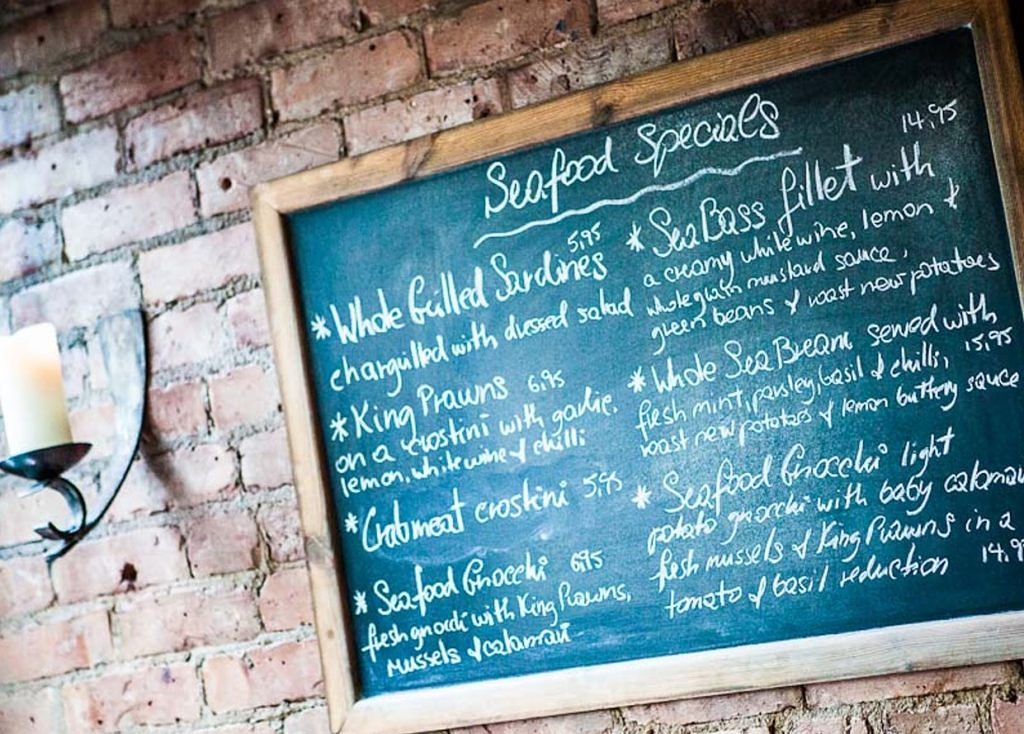 Seafood Specials
* Whole Grilled Sardines 5,95
chargrilled with dressed salad
* King Prawns 6,95
on a crostini with garlic,
lemon, white wine & chilli
* Crabmeat crostini 5,95
* Seafood Gnocchi 6,95
fresh gnocchi with King Prawns,
Mussels & calamari
14,95
* Sea Bass fillet with
a creamy white wine, lemon &
wholegrain mustard sauce,
green beans & roast new potatoes
* Whole Sea Bream served with
fresh mint, parsley, basil & chilli, 15,95
roast new potatoes & lemon buttery sauce
* Seafood Gnocchi light
potato gnocchi with baby calamari
fresh mussels & King Prawns in a
tomato & basil reduction 14.9